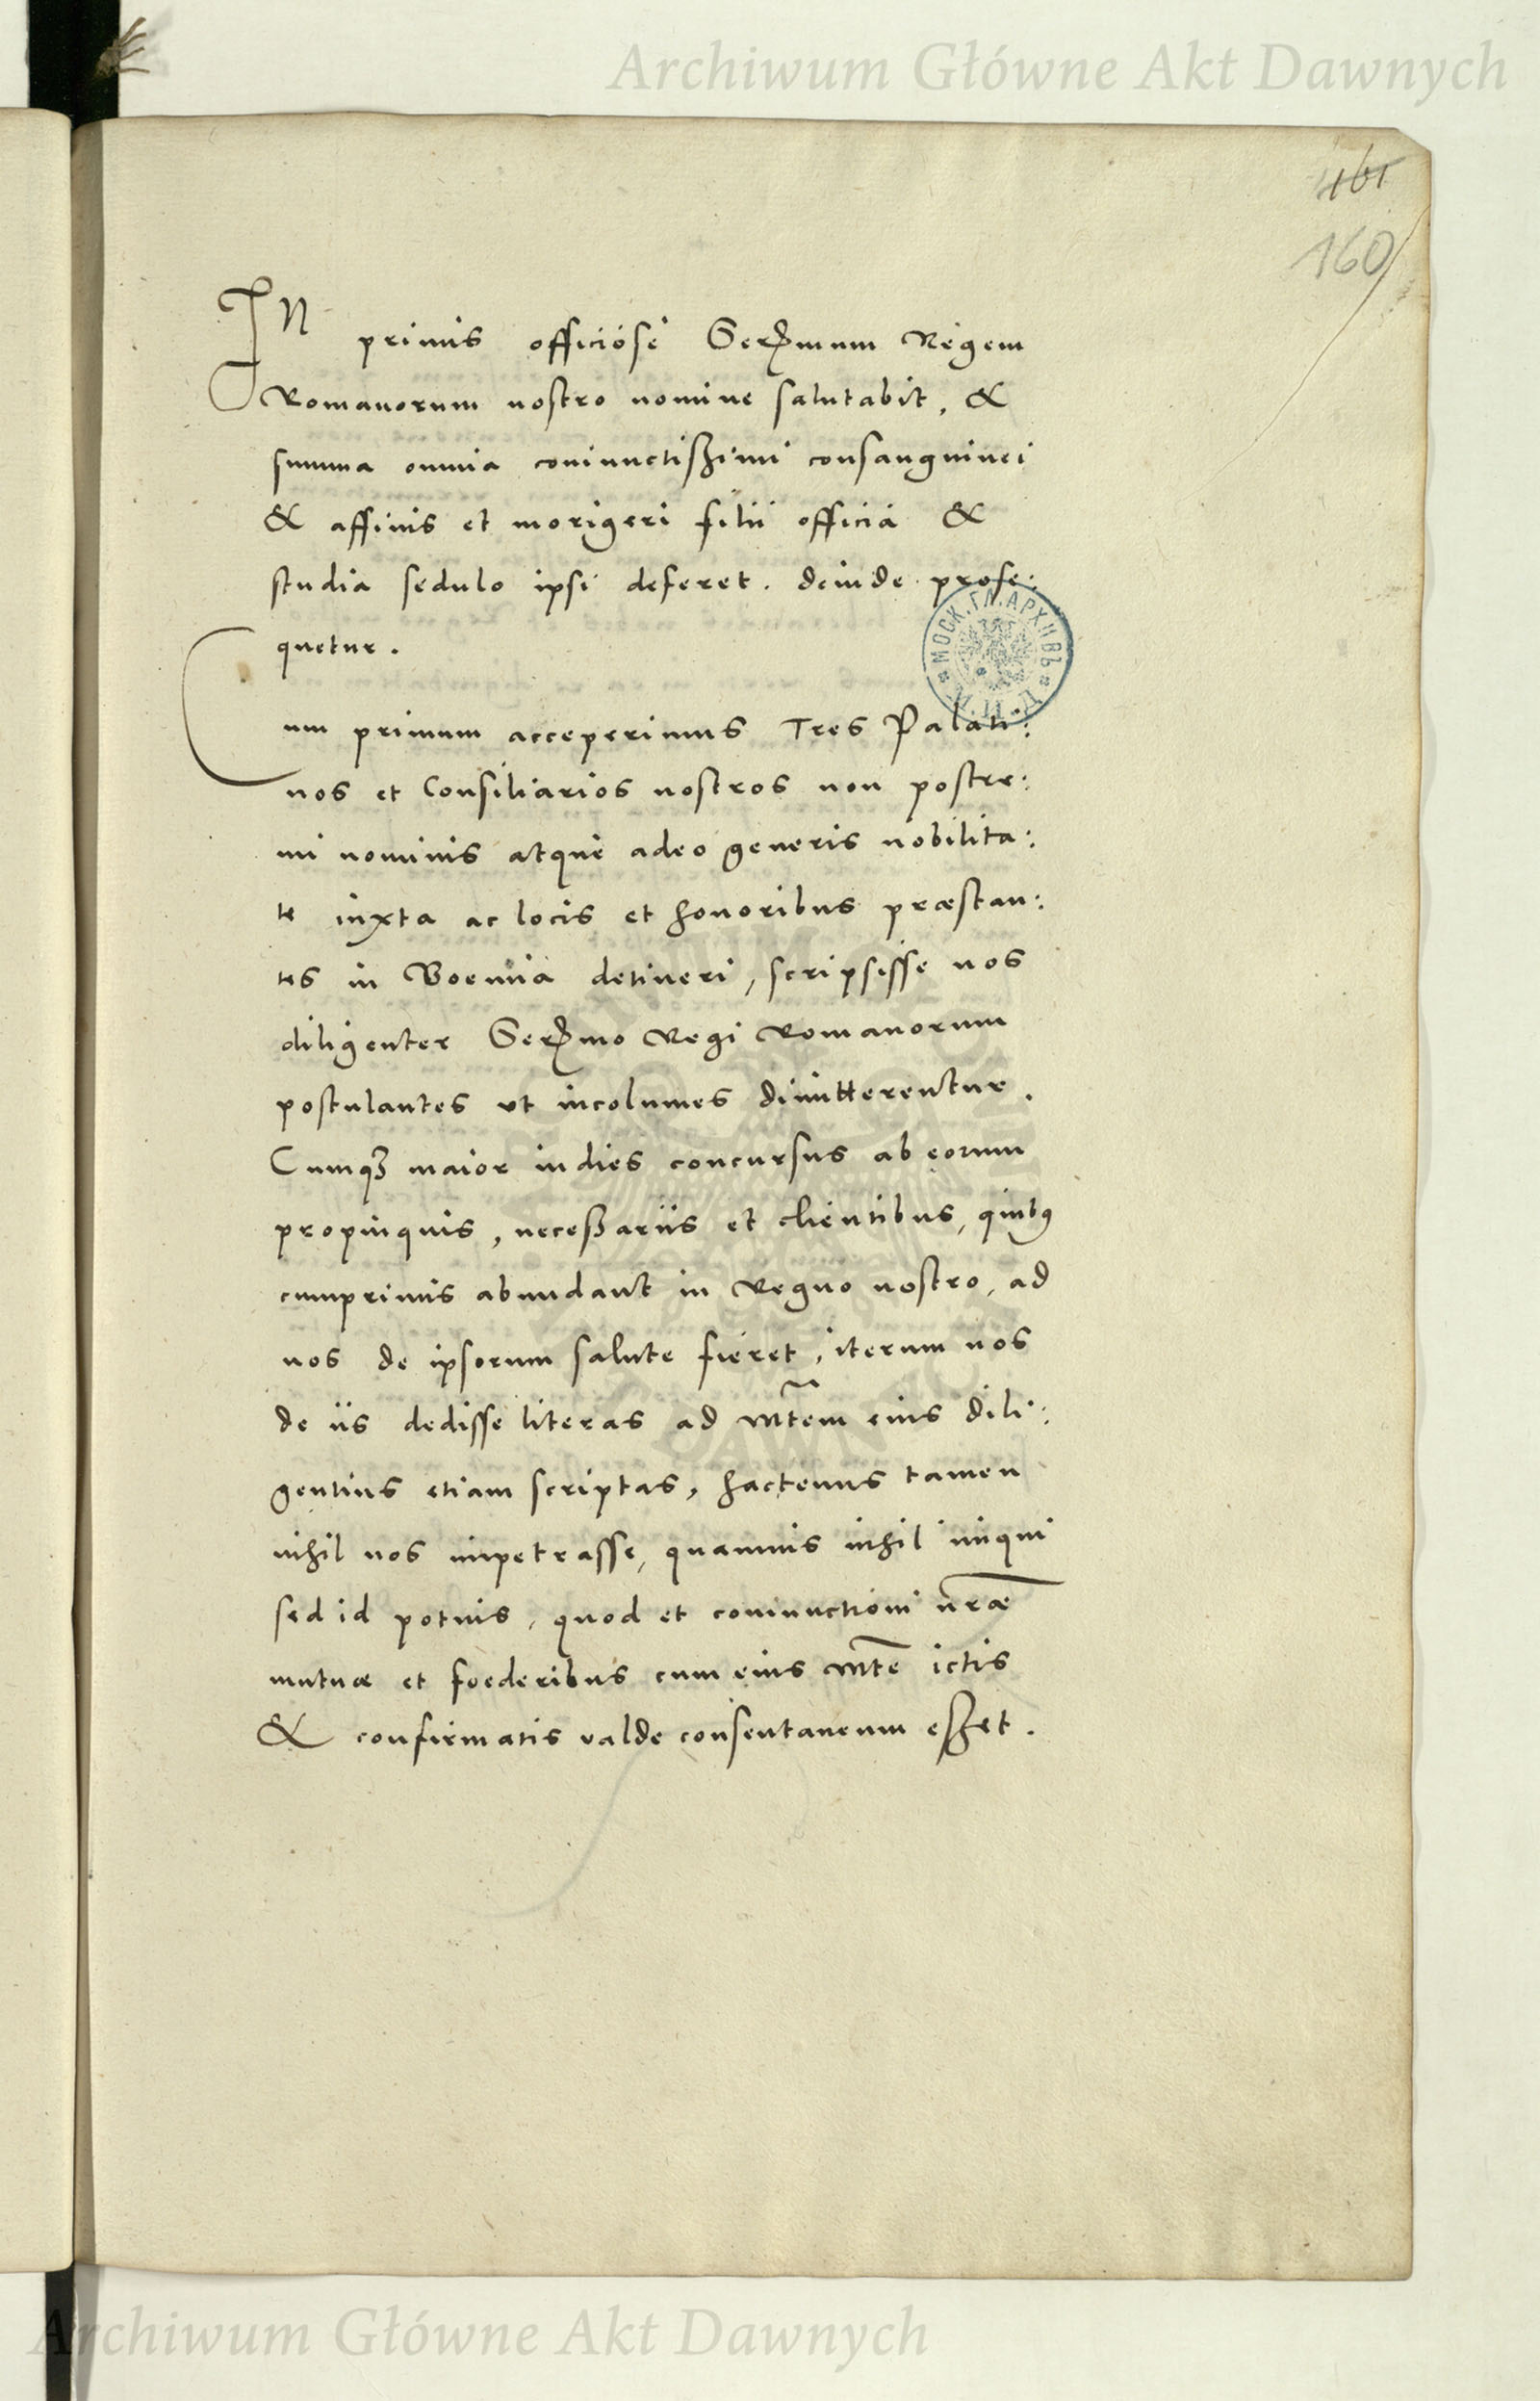 Archiwum Główne Akt Dawnych
161
160
IN primis officiose Serₘmum Regem
Romanorum nostro nomine salutabit, &
summa omnia coniunctißimi consanguinei
& affinis et morigeri filii officia &
studia sedulo ipsi deferet. deinde prose:
quetur.
МОСК.ГЛ.АРХИВЪ
Cum primum acceperimus Tres Palati:
nos et Consiliarios nostros non postre:
mi nominis atque adeo generis nobilita:
te iuxta ac locis et honoribus præstan:
tes in Boemia detineri, scripsisse nos
diligenter Serₘmo Regi Romanorum
postulantes ut incolumes dimitterentur.
Cumqȝ maior indies concursus ab eorum
propinquis, neceßariis et clientibus, quibꝰ
cumprimis abundant in Regno nostro, ad
nos de ipsorum salute fieret, iterum nos
de iis dedisse literas ad Mt̃em eius dili:
gentius etiam scriptas, hactenus tamen
nihil nos impetrasse, quamuis nihil iniqui
sed id potuis, quod et coniunctioni nr̃æ
mutuæ et foederibus cum eius Mt̃e ictis
& confirmatis valde consentaneum eßet.
Archiwum Główne Akt Dawnych